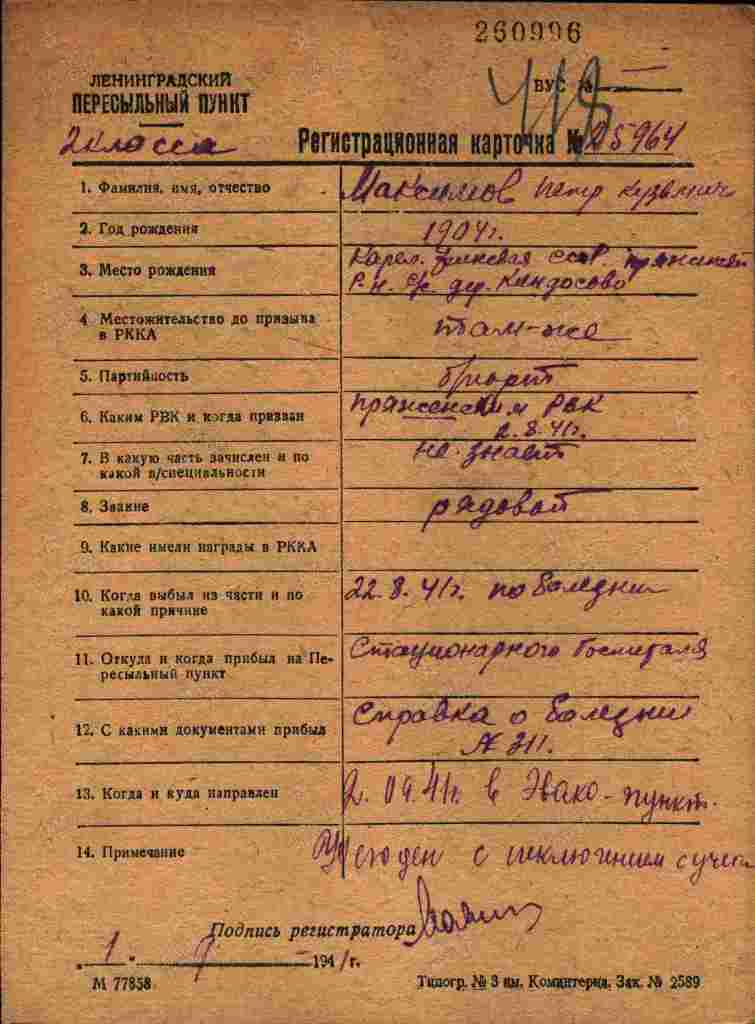 260996
ЛЕНИНГРАДСКИЙ
ПЕРЕСЫЛЬНЫЙ ПУНКТ
2 класса
ВУС №
Регистрационная карточка № 25964
1. Фамилия, имя, отчество Максимов Петр Кузьмич
2. Год рождения 1904г.
3. Место рождения Карел. Финская сср.
дер. Киндосово
4 Местожительство до призыва
в РККА там-же
5. Партийность
6. Каким РВК и когда призван пряженским РВК
2.8.41г.
7. В какую часть зачислен и по
какой в/специальности не знает
8. Звание рядовой
9. Какие имели награды в РККА
10. Когда выбыл из части и по
какой причине 22.8.41г. по болезни
11. Откуда и когда прибыл на Пе-
ресыльный пункт Стационарного Госпиталя
12. С какими документами прибыл Справка о болезни
№ 311.
13. Когда и куда направлен 2.09.41г. в Эвако-пункт.
14. Примечание годен с исключением с учета
Подпись регистратора
„1" 9 1941г.
М 77858
Типогр. № 3 им. Коминтерна. Зак. № 2589